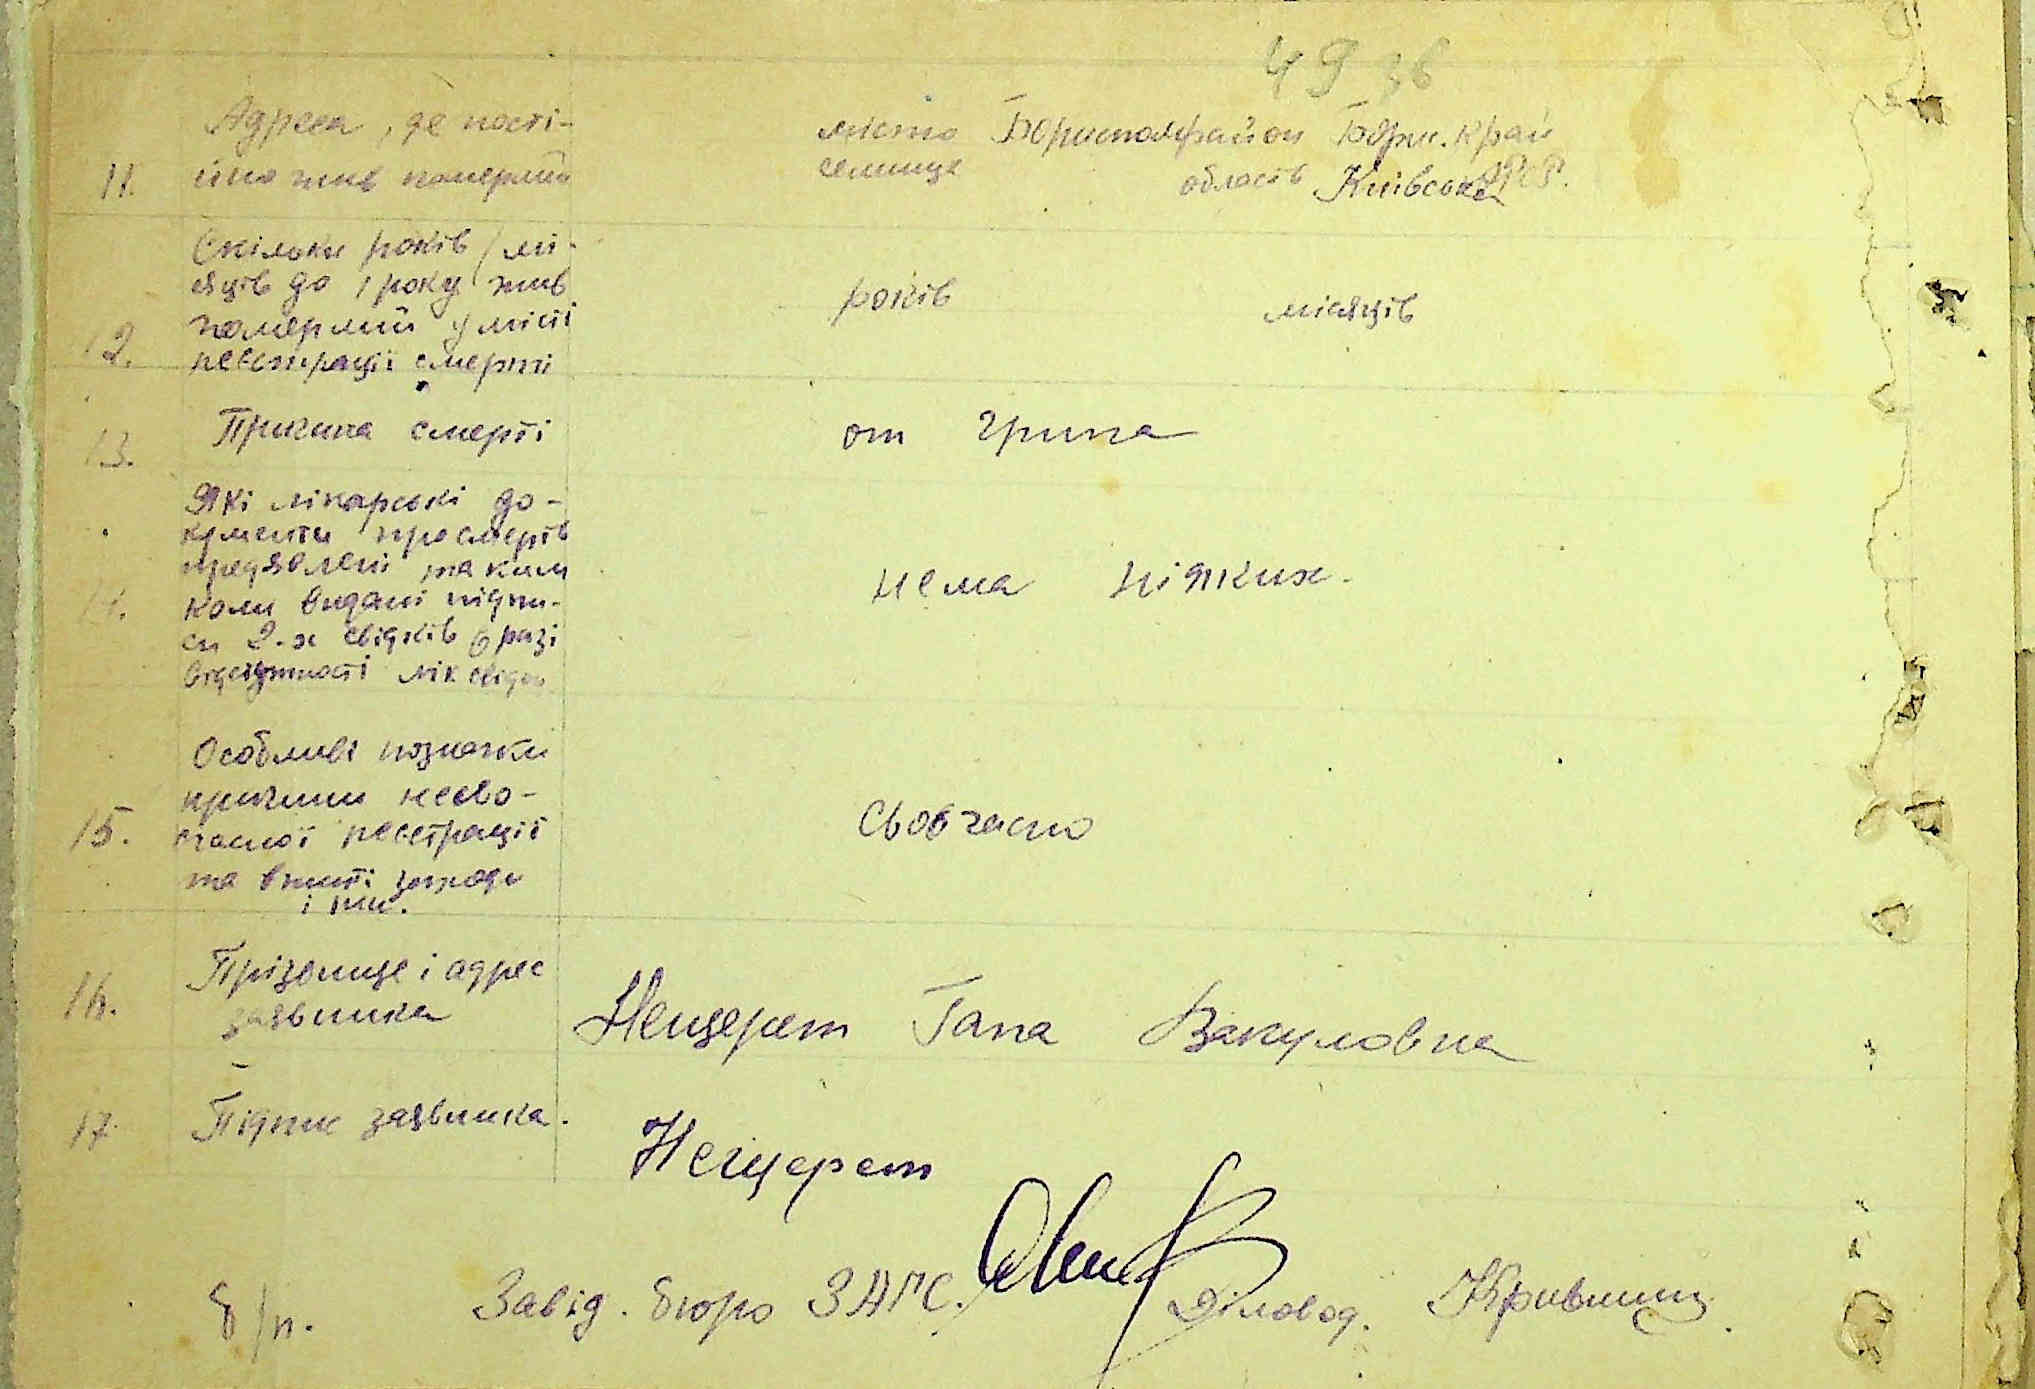 49 зв
11. Адреса, де пості-
йно жив померлий
місто Бориспол район Борис. край
селище область Київська УРСР.
12. Скільки років (мі-
сяців до 1 року) жив
померлий у місті
реєстрації смерті
років місяців
13. Причина смерті
от грипа
14. Які лікарські до-
кументи про смерть
предявлені та ким
коли видані підпи-
си 2-х свідків в разі
відсутності лік свідоц
нема ніяких.
15. Особливі позначки
причини несво-
єчасної реєстрації
та вжиті заходи
і інш.
Своєчасно
16. Прізвище і адрес
заявника
Нещерет Гапа Вакуловна
17. Підпис заявника.
Нещерет
б/п. Завід. бюро ЗАГС. Діловод.